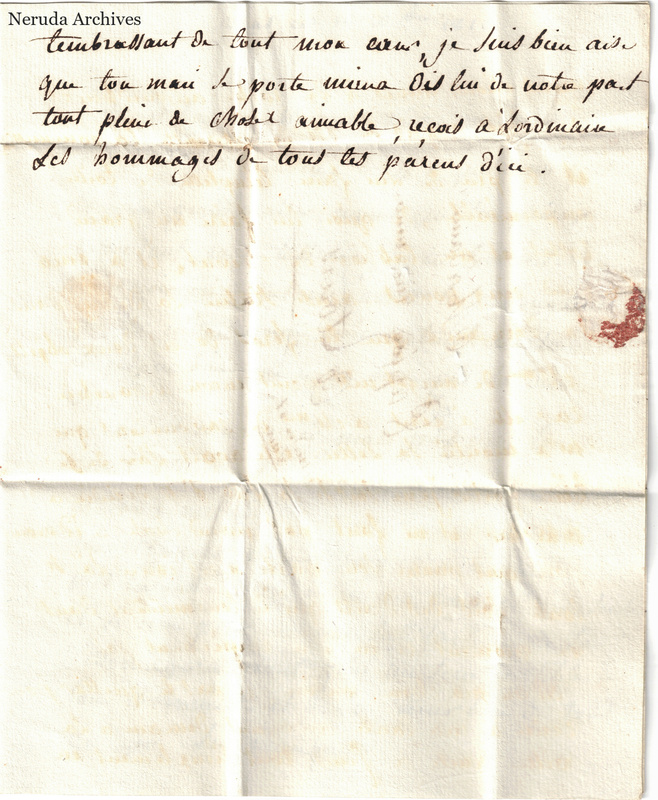 Neruda Archives
tembrassant de tout mon cœur, je suis bien aise
que ton mari se porte mieux dis lui de notre part
tout plein de choses aimable, reçois a Lordinaire
Les hommages de tous les parens d'ici.